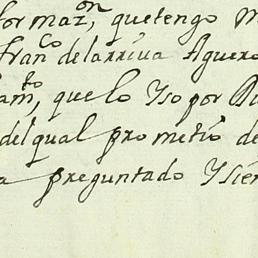 formaz.on, que tengo m
fran.co de la rriva Aguero
am.to, que lo Yso por Di
del qual prometio de
a preguntado Ysien